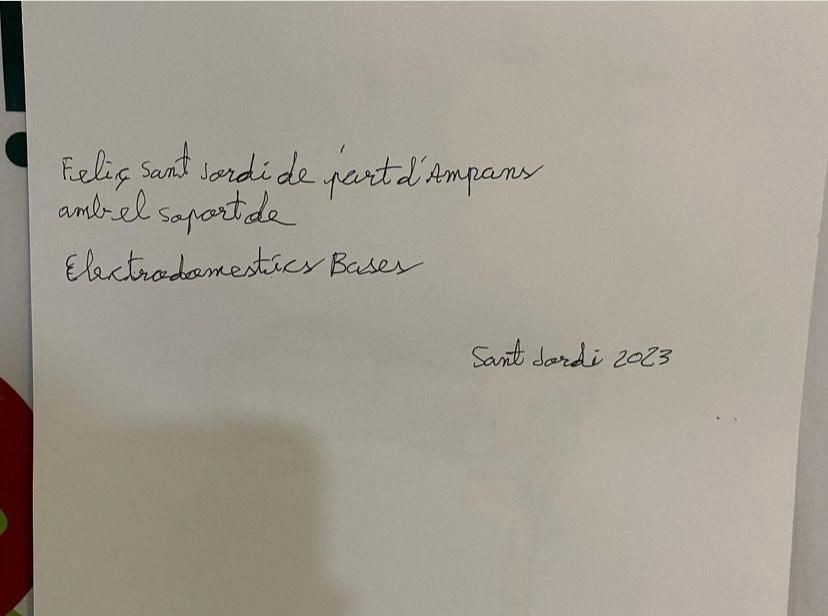 Feliç Sant Jordi de part d'Ampans
amb el soport de
Electrodomestics Bases
Sant Jordi 2023